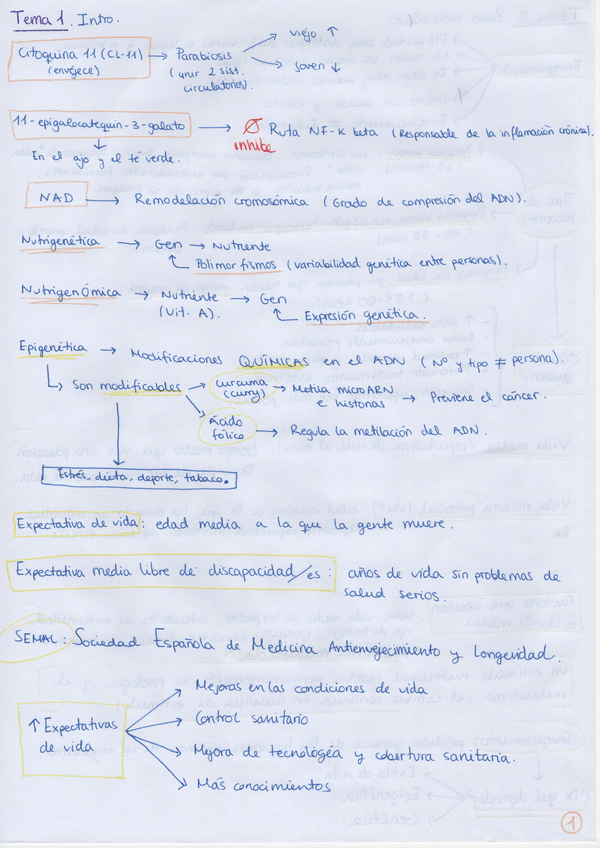 Tema 1. Intro.
Citoquina 11 (CL-11) → Parabiosis → viejo ↑
(envejece) (unir 2 sist. circulatorios). → joven ↓
11-epigalocatequin-3-galato → Ø Ruta NF-K beta (Responsable de la inflamación crónica).
inhibe
En el ajo y el té verde.
NAD → Remodelación cromosómica (Grado de compresión del ADN).
Nutrigenética → Gen → Nutriente
Polimorfismos (variabilidad genética entre personas).
NutrigenÓmica → Nutriente → Gen
(Vit. A). Expresión genética.
Epigenética → Modificaciones QUÍMICAS en el ADN (Nº y tipo ≠ persona).
Son modificables → curcuma (curry) → Metila microARN e histonas → Previene el cáncer.
Ácido fólico → Regula la metilación del ADN.
Estrés, dieta, deporte, tabaco.
Expectativa de vida: edad media a la que la gente muere.
Expectativa media libre de discapacidad/es: años de vida sin problemas de
salud serios.
SEMAL: Sociedad Española de Medicina Antienvejecimiento y Longevidad.
↑ Expectativas de vida → Mejoras en las condiciones de vida
→ Control sanitario
→ Mejora de tecnología y cobertura sanitaria.
→ Más conocimientos
1